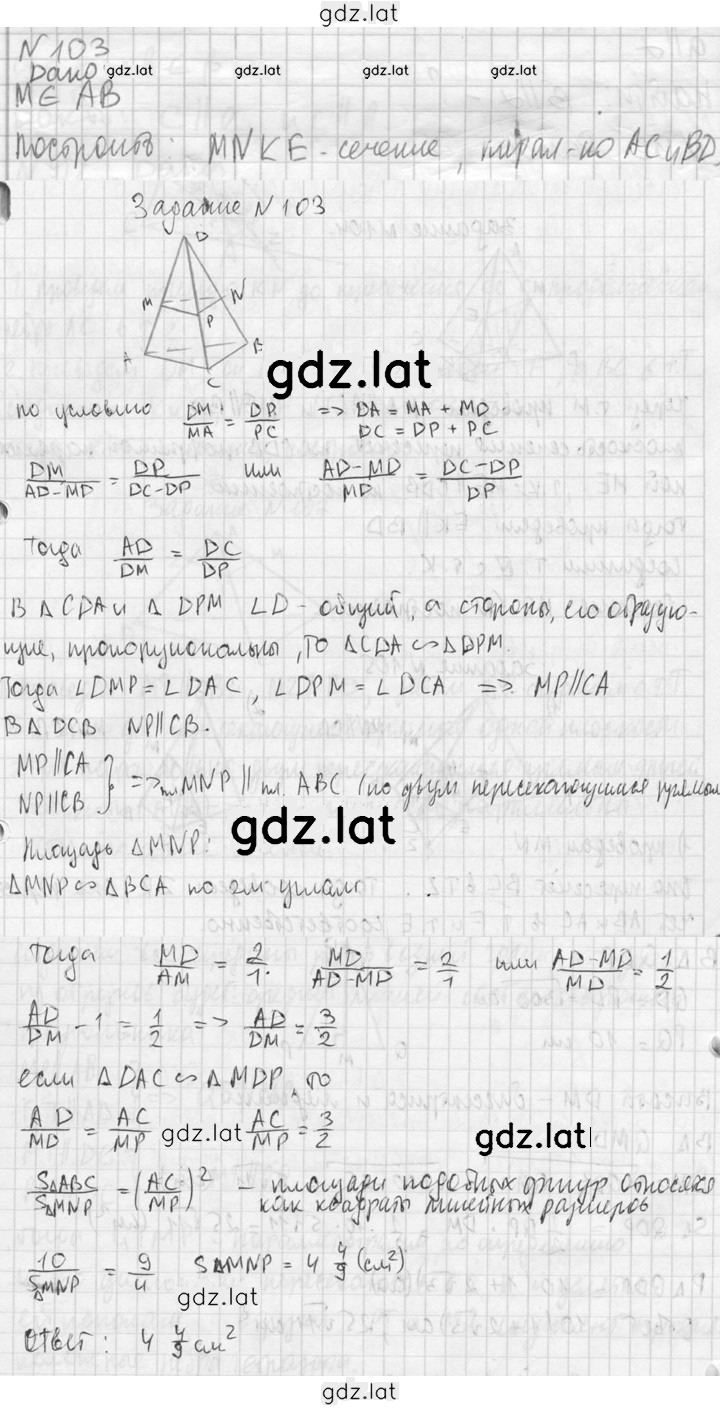 gdz.lat
N 103
Дано gdz.lat gdz.lat gdz.lat
M ∈ AB
Построить: MNKE - сечение, парал-но AC и BD,
Задание N 103
D
M N
P
A B
C
gdz.lat
по условию DM/MA = DP/PC => DA = MA + MD
DC = DP + PC
DM/(AD-MD) = DP/(DC-DP) или (AD-MD)/MD = (DC-DP)/DP
Тогда AD/DM = DC/DP
В Δ CDA и Δ DPM ∠D - общий, а стороны, его образую-
щие, пропорциональны, то ΔCDA ∽ ΔDPM.
Тогда ∠DMP = ∠DAC, ∠DPM = ∠DCA => MP∥CA
В Δ DCB NP∥CB.
MP∥CA
NP∥CB } => пл MNP ∥ пл. ABC (по двум пересекающимся прямым
gdz.lat
Площадь ΔMNP:
ΔMNP ∽ ΔBCA по 2м углам
Тогда MD/AM = 2/1. MD/(AD-MD) = 2/1 или (AD-MD)/MD = 1/2
AD/DM - 1 = 1/2 => AD/DM = 3/2
если Δ DAC ∽ Δ MDP, то
AD/MD = AC/MP gdz.lat AC/MP = 3/2 gdz.lat
SΔABC/SΔMNP = (AC/MP)² - площади подобных фигур относятся
как квадраты линейных размеров
10/SΔMNP = 9/4 SΔMNP = 4 4/9 (см²)
gdz.lat
Ответ: 4 4/9 см²
gdz.lat